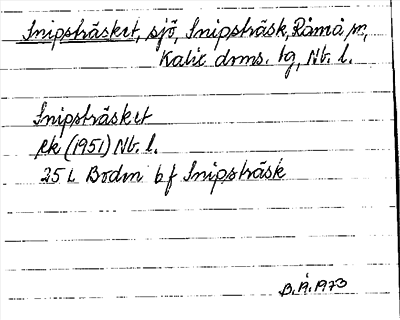 Snipsträsket, sjö, Snipsträsk, Råmå sn,
Kalix dmms. tg, Nb. l.
Snipsträsket
ek (1951) Nb. l.
25 L Bodm bf Snipsträsk
B.Å.1973